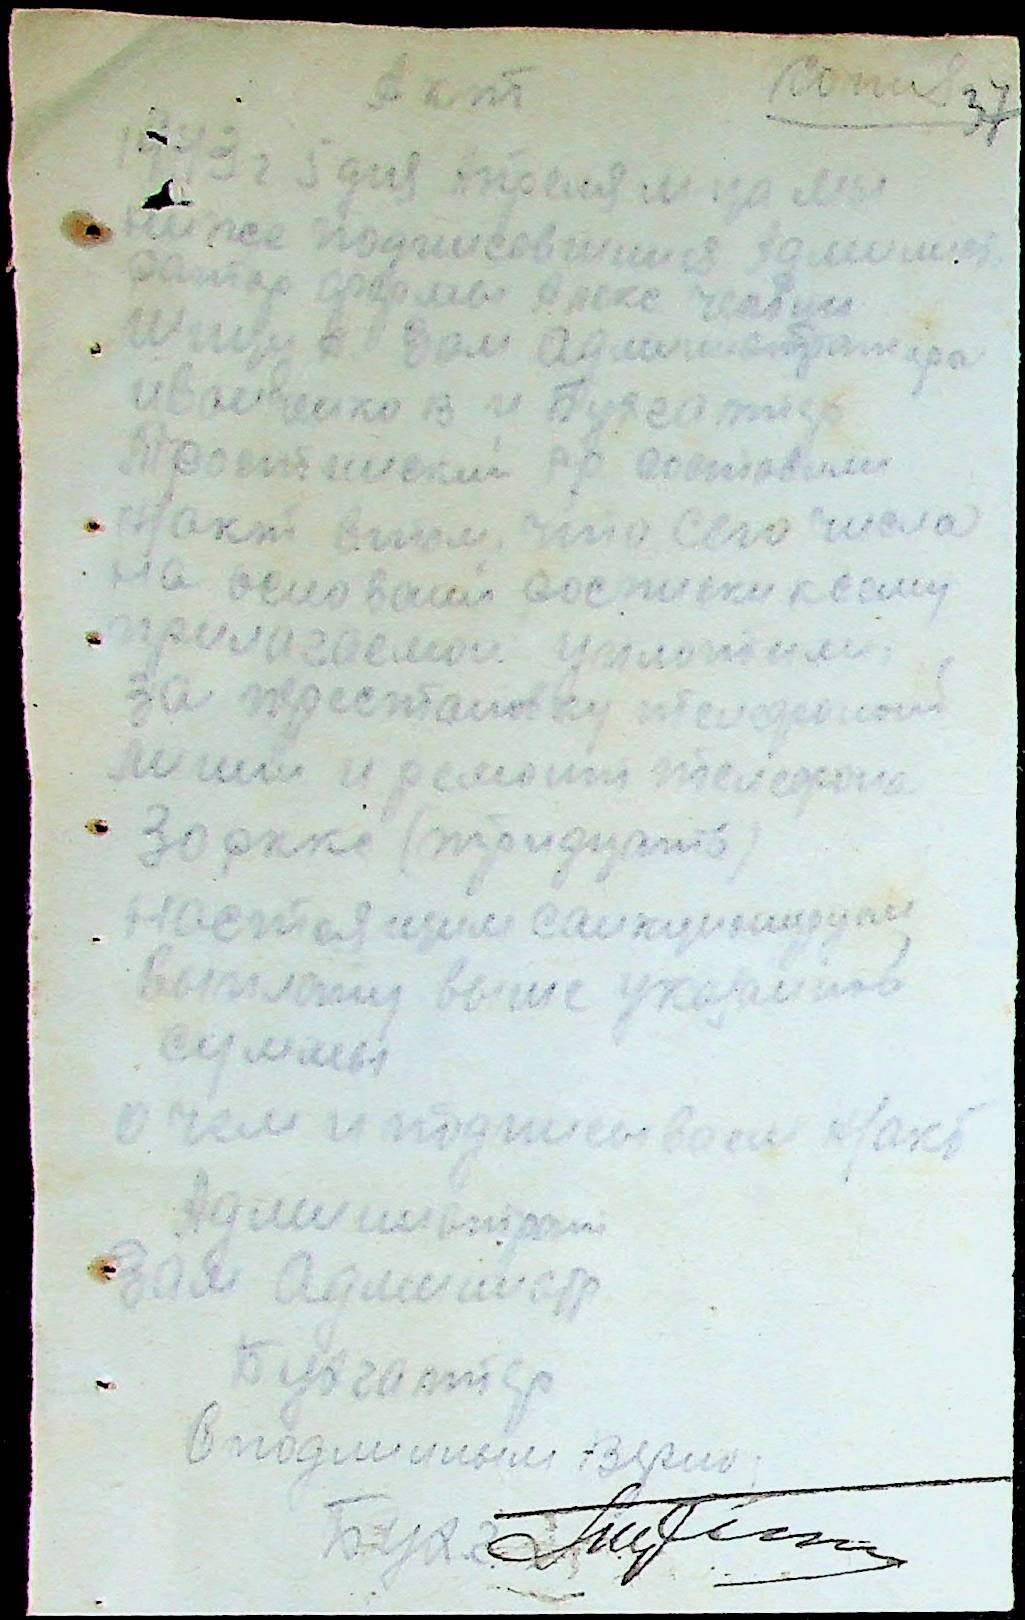 Акт Копия 37
1943 г 5 дня Апреля м ца мы
ниже подписавшиися Админист
ратор фермы Алекс
Зам Администратора
иванченко в и Бухгалтер
составили
н/акт втом, что сего числа
на основании росписки к сему
прилагаемой уплотили
за перестановку телефоной
линии и ремонт телефона
30 ркк (тридцать)
Настоящим санкционируем
выплату выше указаной
суммы
о чем и подписываем н/акт
Администрат
Зам Администр
Бухгалтер
С подлинным верно:
Бухг.